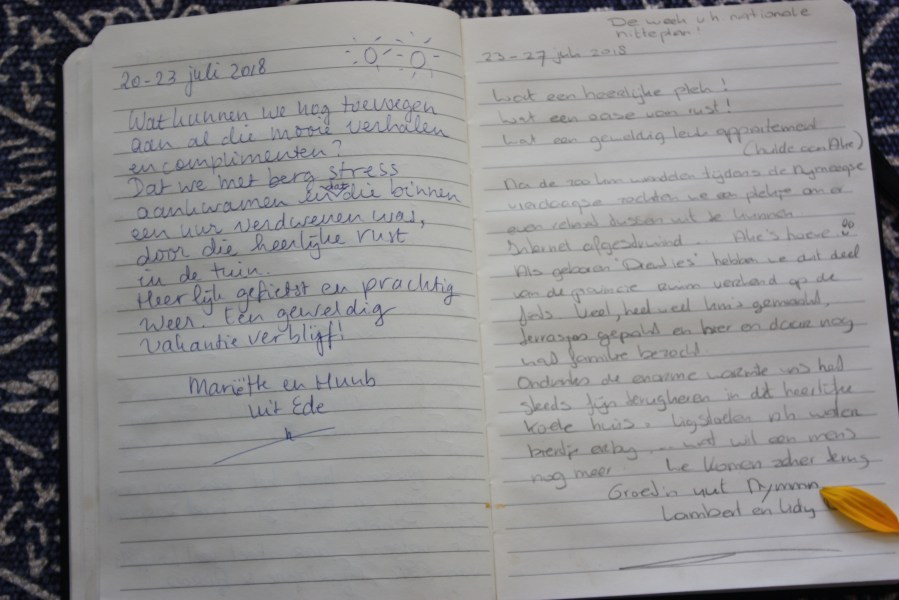 20-23 juli 2018
Wat kunnen we nog toevoegen
aan al die mooie verhalen
en complimenten?
Dat we met berg stress
aankwamen en dat die binnen
een uur verdwenen was,
door die heerlijke rust
in de tuin.
Heerlijk gefietst en prachtig
weer. Een geweldig
vakantie verblijf!
Mariëtte en Huub
uit Ede
De week v/h nationale
hitteplan!
23-27 juli 2018
Wat een heerlijke plek!
Wat een oase van rust!
Wat een geweldig leuk appartement
(hulde aan Ake)
Na de 200 km wandelen tijdens de Nijmeegse
vierdaagse zochten we een plekje om er
even tussen uit te kunnen
Internet afgestruind... Ake's hoeve
Als geboren "Drenties" hebben we dit deel
van de provincie verkend op de
fiets. Veel, heel veel km's gemaakt,
terrasjes gepakt en hier en daar nog
wat familie bezocht.
Ondanks de enorme warmte was het
steeds fijn terugkeren in dit heerlijke
koele huis. Ligstoelen
biertje erbij .... wat wil een mens
nog meer. We komen zeker terug
Groetjes uit Nijmegen
Lambert en